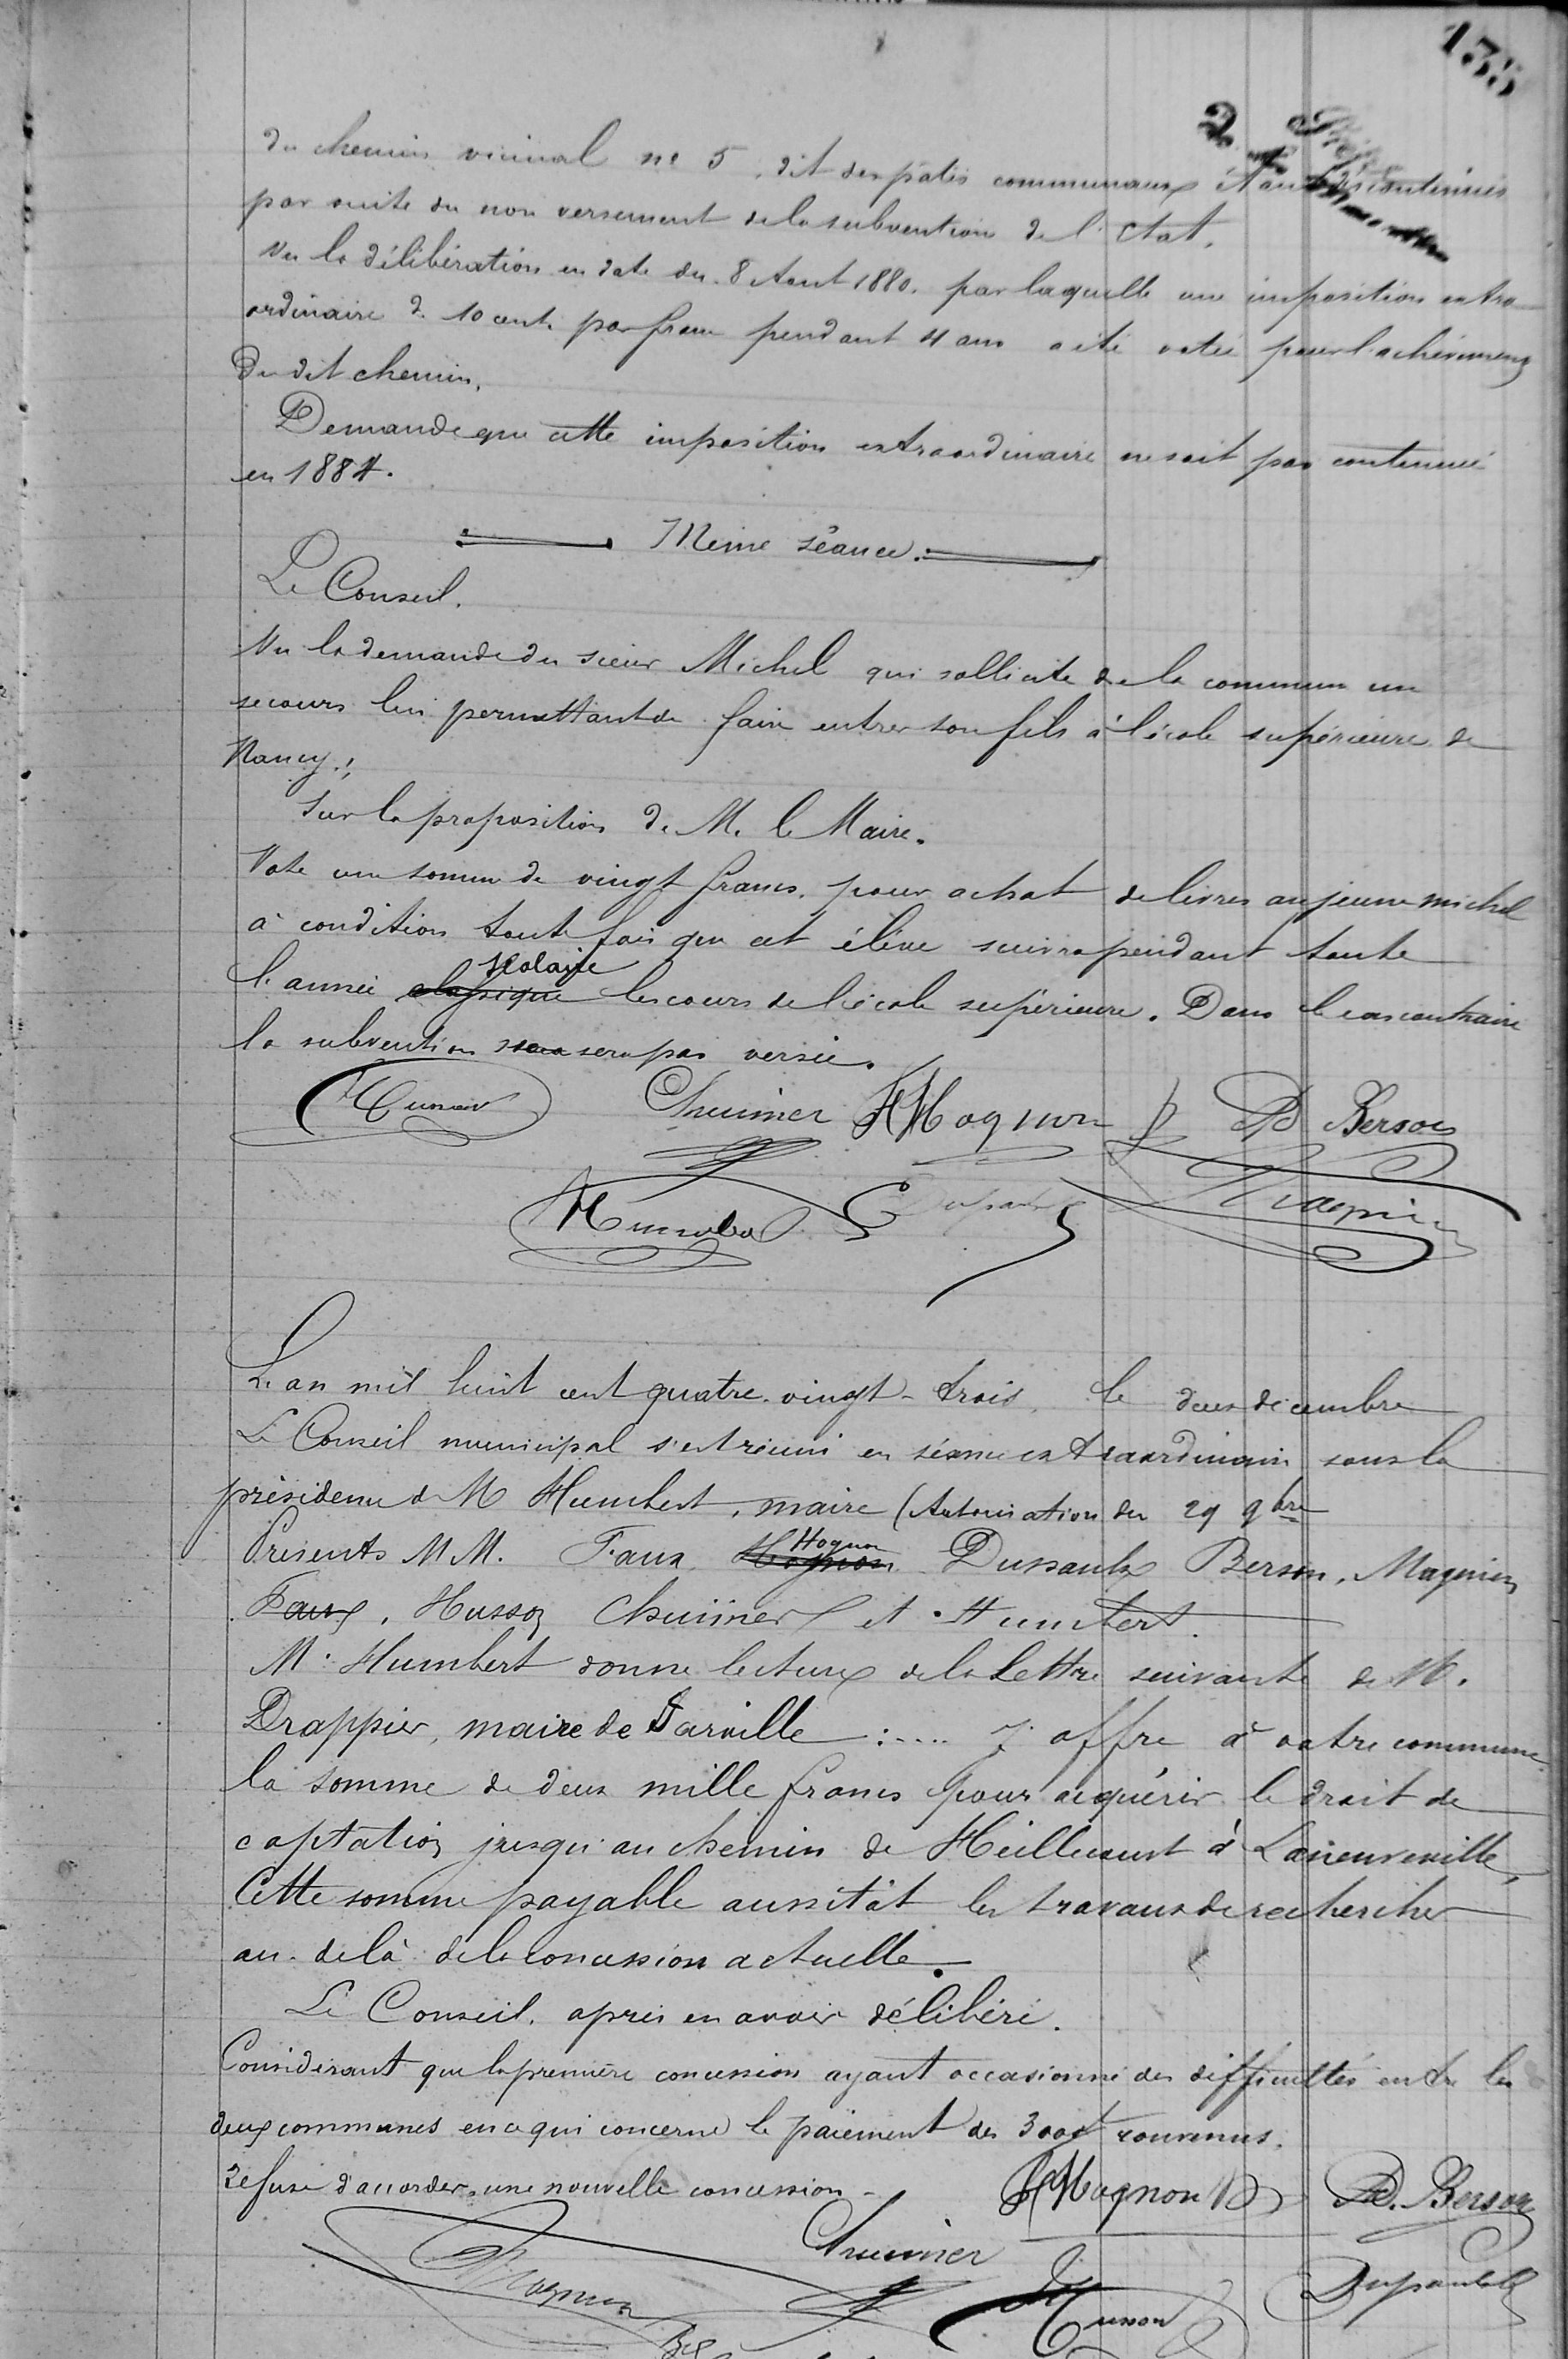 135
2
du chemin vicinal nº 5, dit des patis communaux étant discontinués
par suite du non versement de la subvention de l'Etat.
Vu la délibération en date du 8 Aout 1880. par laquelle une imposition extra
ordinaire de 10 cent. par franc pendant 4 ans a été votée pour l'achèvement
du dit chemin.
Demande que cette imposition extraordinaire ne soit pas continuée
en 1884.
Même séance.
Le Conseil.
Vu la demande du sieur Michel qui sollicite de la commune un
secours lui permettant de faire entrer son fils à l'école supérieure de
Nancy;
Sur la proposition de M. le Maire.
Vote une somme de vingt francs. pour achat de livres au jeune Michel
à condition toute fois que cet élève suivra pendant toute
scolaire
l'année classique les cours de l'école supérieure. Dans le cas contraire
la subvention ne sera pas versée.
Husson Chuimer H Hognon D Berson
Humbert Dussaulx Magnien
L'an mil huit cent quatre-vingt-trois, le deux décembre
Le Conseil municipal s'est réuni en séance extraordinaire sous la
présidence de M Humbert, maire (Autorisation du 29 9bre
Hognon
Présents MM. Faux, Hognon Dussaulx Berson, Magnien
Faux, Husson Chuimer et Humbert.
M. Humbert donne lecture de la Lettre suivante de M.
Drappier, maire de Jarville :.... J'offre à votre commune
la somme de deux mille francs pour acquérir le droit de
captation jusqu'au chemin de Heillecourt à Laneuveville,
Cette somme payable aussitôt les travaux de recherches
au-delà de la concession actuelle.
Le Conseil. après en avoir délibéré.
Considérant que la première concession ayant occasionné des difficultés entre les
deux communes en ce qui concerne le paiement des 300f convenus.
Refuse d'accorder une nouvelle concession -
H Hognon D. Berson
Chuimer
Magnien Husson Dussaulx